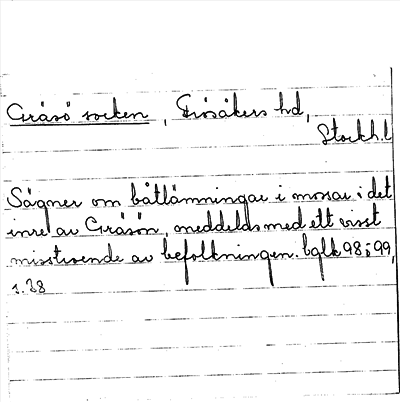 Gräsö socken, Frösåkers hd,
Stockh.l
Sägner om båtlämningar i mossar i det
inre av Gräsön, meddelds med ett visst
misstroende av befolkningen. 98; 99,
s. 38